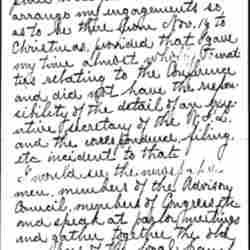 arrange my engagements so
as to be there from Nov. 19 to
Christmas, provided that I gave
my time almost wholly to mat
ters relating to the Conference
and did not have the respon
sibility of the detail of an Exec
utive Secretary of the W.I.L.
and the correspondence, filing,
etc incident to that.
I would see the newspaper
men, members of the Advisory
Council, members of Congress etc
and speak at parlor meetings
and gather together the old